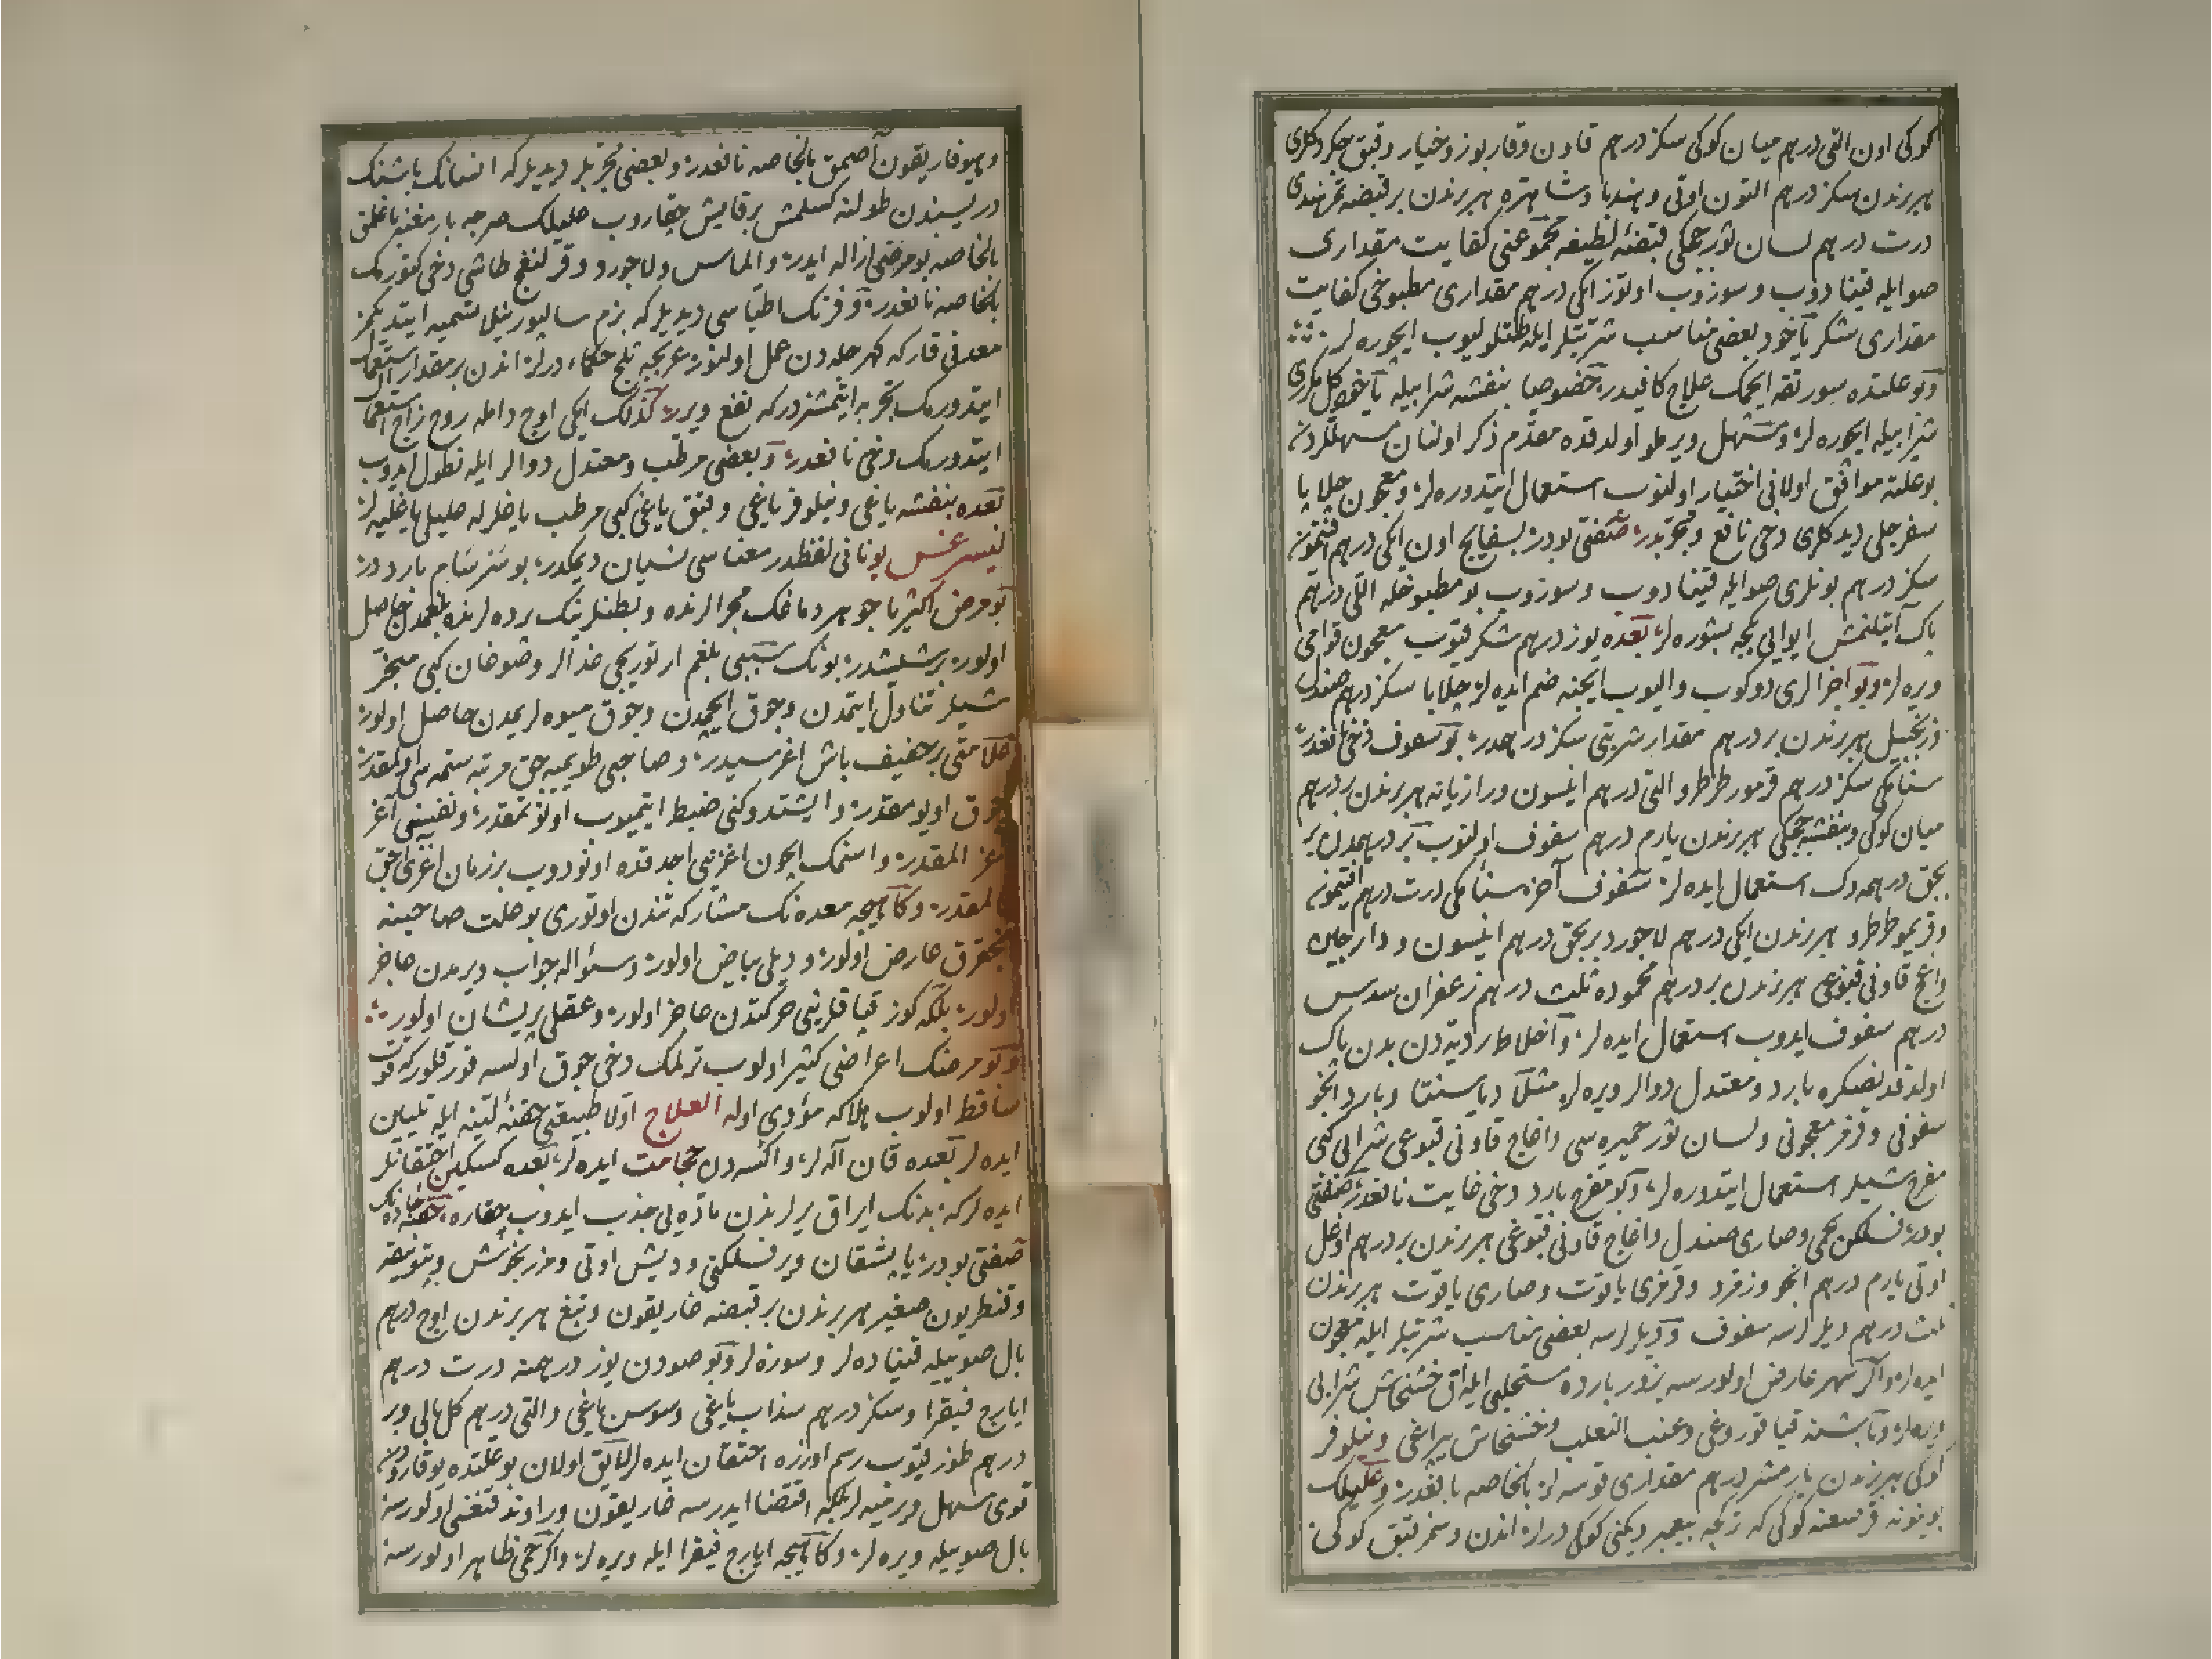 كوكى اون التى درهم ميان كوكى سكز درهم قاون وقاربوز وخيار وقبق چكردكلرى
هر برندن سكز درهم التون اوتى وهندبا وشاهتره هر برندن بر قبضه تمر هندى
درت درهم لسان ثور چچكى قبضهٔ لطيفه مجموعنى كفايت مقدارى
صو ايله قينادوب وسوزوب اولوز ايكى درهم مقدارى مطبوخى كفايت
مقدارى شكر ياخود بعضى مناسب شربتلر ايله طتلوليوب ايچوره لر
وبو علتده سورتقه ايچمك علاج كافيدر خصوصا بنفشه شرابيله ياخود كل مكررى
شرابيله ايچوره لر ومسهل ويرملو اولدقده مقدم ذكر اولنان مسهللردن
بو علته موافق اولانى اختيار اولنوب استعمال ايتدوره لر ومعجون جلابا
سفرجلى ديدكلرى دخى نافع ومجربدر صفتى بودر بسفايج اون ايكى درهم افتيمون
سكز درهم بونلرى صو ايله قينادوب وسوزوب بو مطبوخله اللى درهم
پاك آيتلنمش ايوايى كيجه پشوره لر بعده يوز درهم شكر قيوب معجون قوامى
ويره لر وبو اجزالرى دوكوب واليوب ايچنه ضم ايده لر جلابا سكز درهم صندل
زنجبيل هر برندن بر درهم مقدار شربتى سكز درهمدر بو سفوف دخى نافعدر
سنامكى سكز درهم قرمور طرطر والتى درهم انيسون ورازيانه هر برندن بر درهم
ميان كوكى وبنفشه چچكى هر برندن يارم درهم سفوف اولنوب بر درهمدن بر
بچق درهمه دك استعمال ايده لر سفوف آخر سنامكى درت درهم افتيمون
وقريمور طرطر هر برندن ايكى درهم لاجورد بر بچق درهم انيسون ودارچين
واغاج قاونى قبوغى هر برندن بر درهم محموده ثلث درهم زعفران سدس
درهم سفوف ايدوب استعمال ايده لر واخلاط رديه دن بدن پاك
اولدقدنصكره بارد ومعتدل دوالر ويره لر مثلا دياسنتا وبارد انجو
سفوفى وقرمز معجونى ولسان ثور خميره سى واغاج قاونى قبوغى شرابى كبى
مفرح شيلر استعمال ايتدوره لر وبو مفرح بارد دخى غايت نافعدر صفتى
بودر فسلكن تخمى وصارى صندل واغاج قاونى قبوغى هر برندن بر درهم اوغل
اوتى يارم درهم انجو وزمرد وقرمزى ياقوت وصارى ياقوت هر برندن
ثلث درهم ديلرلرسه سفوف وديلرلرسه بعضى مناسب شربتلر ايله معجون
ايده لر واكر سهر عارض اولورسه بزور بارده مستحلبى ايله اق خشخاش شرابى
ويره لر وباشنه قيا قوروغى وعنب الثعلب وخشخاش يپراغى ونيلوفر
كوكى هر برندن يارمشر درهم مقدارى قوسه لر بالخاصه نافعدر وعليلك
بوينونه قرصعنه كوكى كه تركجه پيغمبر ديكنى كوكى درلر اندن وسفر قبق كوكن
وهيوفاريقون آصمق بالخاصه نافعدر وبعضى مجربلر ديديلر كه انسانك باشنك
دريسندن طولنه كسلمش بر قايش چقاروب عليلك صرچه پارمغنه باغلمق
بالخاصه بو مرضى ازاله ايدر والماس ولاجورد وقرلنغج طاشى دخى كتورمك
بالخاصه نافعدر وفرنك اطباسى ديديلر كه بزم سالپورنيلا تسميه ايتديكمز
معدنى قار كه كهرجله دن عمل اولنور عربجه ثلج حكماء درلر اندن بر مقدار استعمال
ايتدورمك تجربه ايتمشزدر كه نفع ويرر كذلك ايكى اوچ دامله روح زاج استعمال
ايتدورمك دخى نافعدر وبعضى مرطب ومعتدل دوالر ايله نطول ايدوب
بعده بنفشه ياغى ونيلوفر ياغى وقبق ياغى كبى مرطب ياغلر له عليلى ياغليه لر
ليسرغس يونانى لفظدر معناسى نسيان ديمكدر بو سرسام بارد در
بو مرض اكثريا جوهر دماغك مجرالرنده وبطنلرينك پرده لرنده بلغمدن حاصل
اولور بر شيشدر بونك سببى بلغم ارتوريجى غذالر وصوغان كبى مبخر
شيلر تناول ايتمدن وچوق ايچمدن وچوق ميوه لر يمدن حاصل اولور
علامتى بر خفيف باش اغريسيدر وصاحبى طويميه جق مرتبه ستمه سى اولمقدر
چوق اويومقدر وايشتدوكنى ضبط ايتميوب اونوتمقدر ونفسنى آغر
اغر المقدر واسنمك ايچون اغزينى اچدقده اونودوب بر زمان اغزى اچق
قالمقدر وكاهيجه معده نك مشاركه تندن اوتورى بو علت صاحبنه
انچقرق عارض اولور وديلى بياض اولور وسؤاله جواب ويرمدن عاجز
اولور بلكه كوز قپاقلرينى حركتدن عاجز اولور وعقلى پريشان اولور
وبو مرضك اعراضى كثير اولوب ترلمك دخى چوق اولسه قورقلور كه قوت
ساقط اولوب هلاكه مؤدى اوله العلاج اولا طبيعتى حقنهٔ لينه ايله تليين
ايده لر بعده قان آله لر واكسه دن حجامت ايده لر بعده كسكين احتقانلر
ايده لر كه بدنك ايراق يرلرندن مادهيى جذب ايدوب چقاره حقنهٔ حاده نك
صفتى بودر ياپشقان وير فسلكنى وديش اوتى ومرزنجوش وبتونيقه
وقنطريون صغير هر برندن بر قبضه غاريقون وتبغ هر برندن اوچ درهم
بال صوييله قيناده لر وسوزه لر وبو صودن يوز درهمنه درت درهم
ايارج فيقرا وسكز درهم سذاب ياغى وسوسن ياغى والتى درهم كل بالى وبر
درهم طوز قيوب رسم اوزره احتقان ايده لر لايق اولان بو علتده يوقارودن
قوى مسهل ويرميه لر بلكه اقتضا ايدرسه غاريقون وراوند قنغى اولورسه
بال صوييله ويره لر وكاهيجه ايارج فيقرا ايله ويره لر واكر حمى ظاهر اولورسه